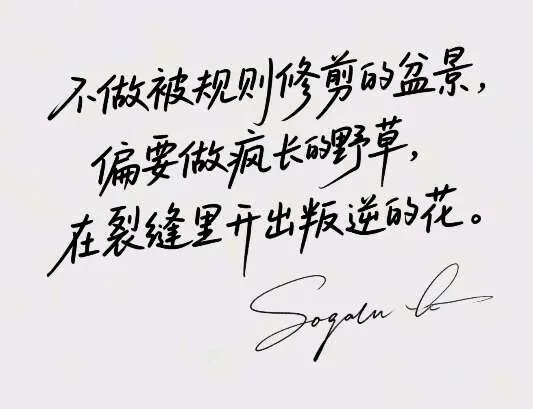 不做被规则修剪的盆景，
偏要做疯长的野草，
在裂缝里开出叛逆的花。